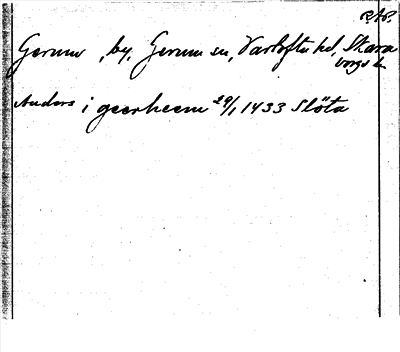 RAP.
Gerum, by, Gerum sn, Vartofta hd, Skara
borgs l.
Anders i geerheem 29/1 1433 Slöta